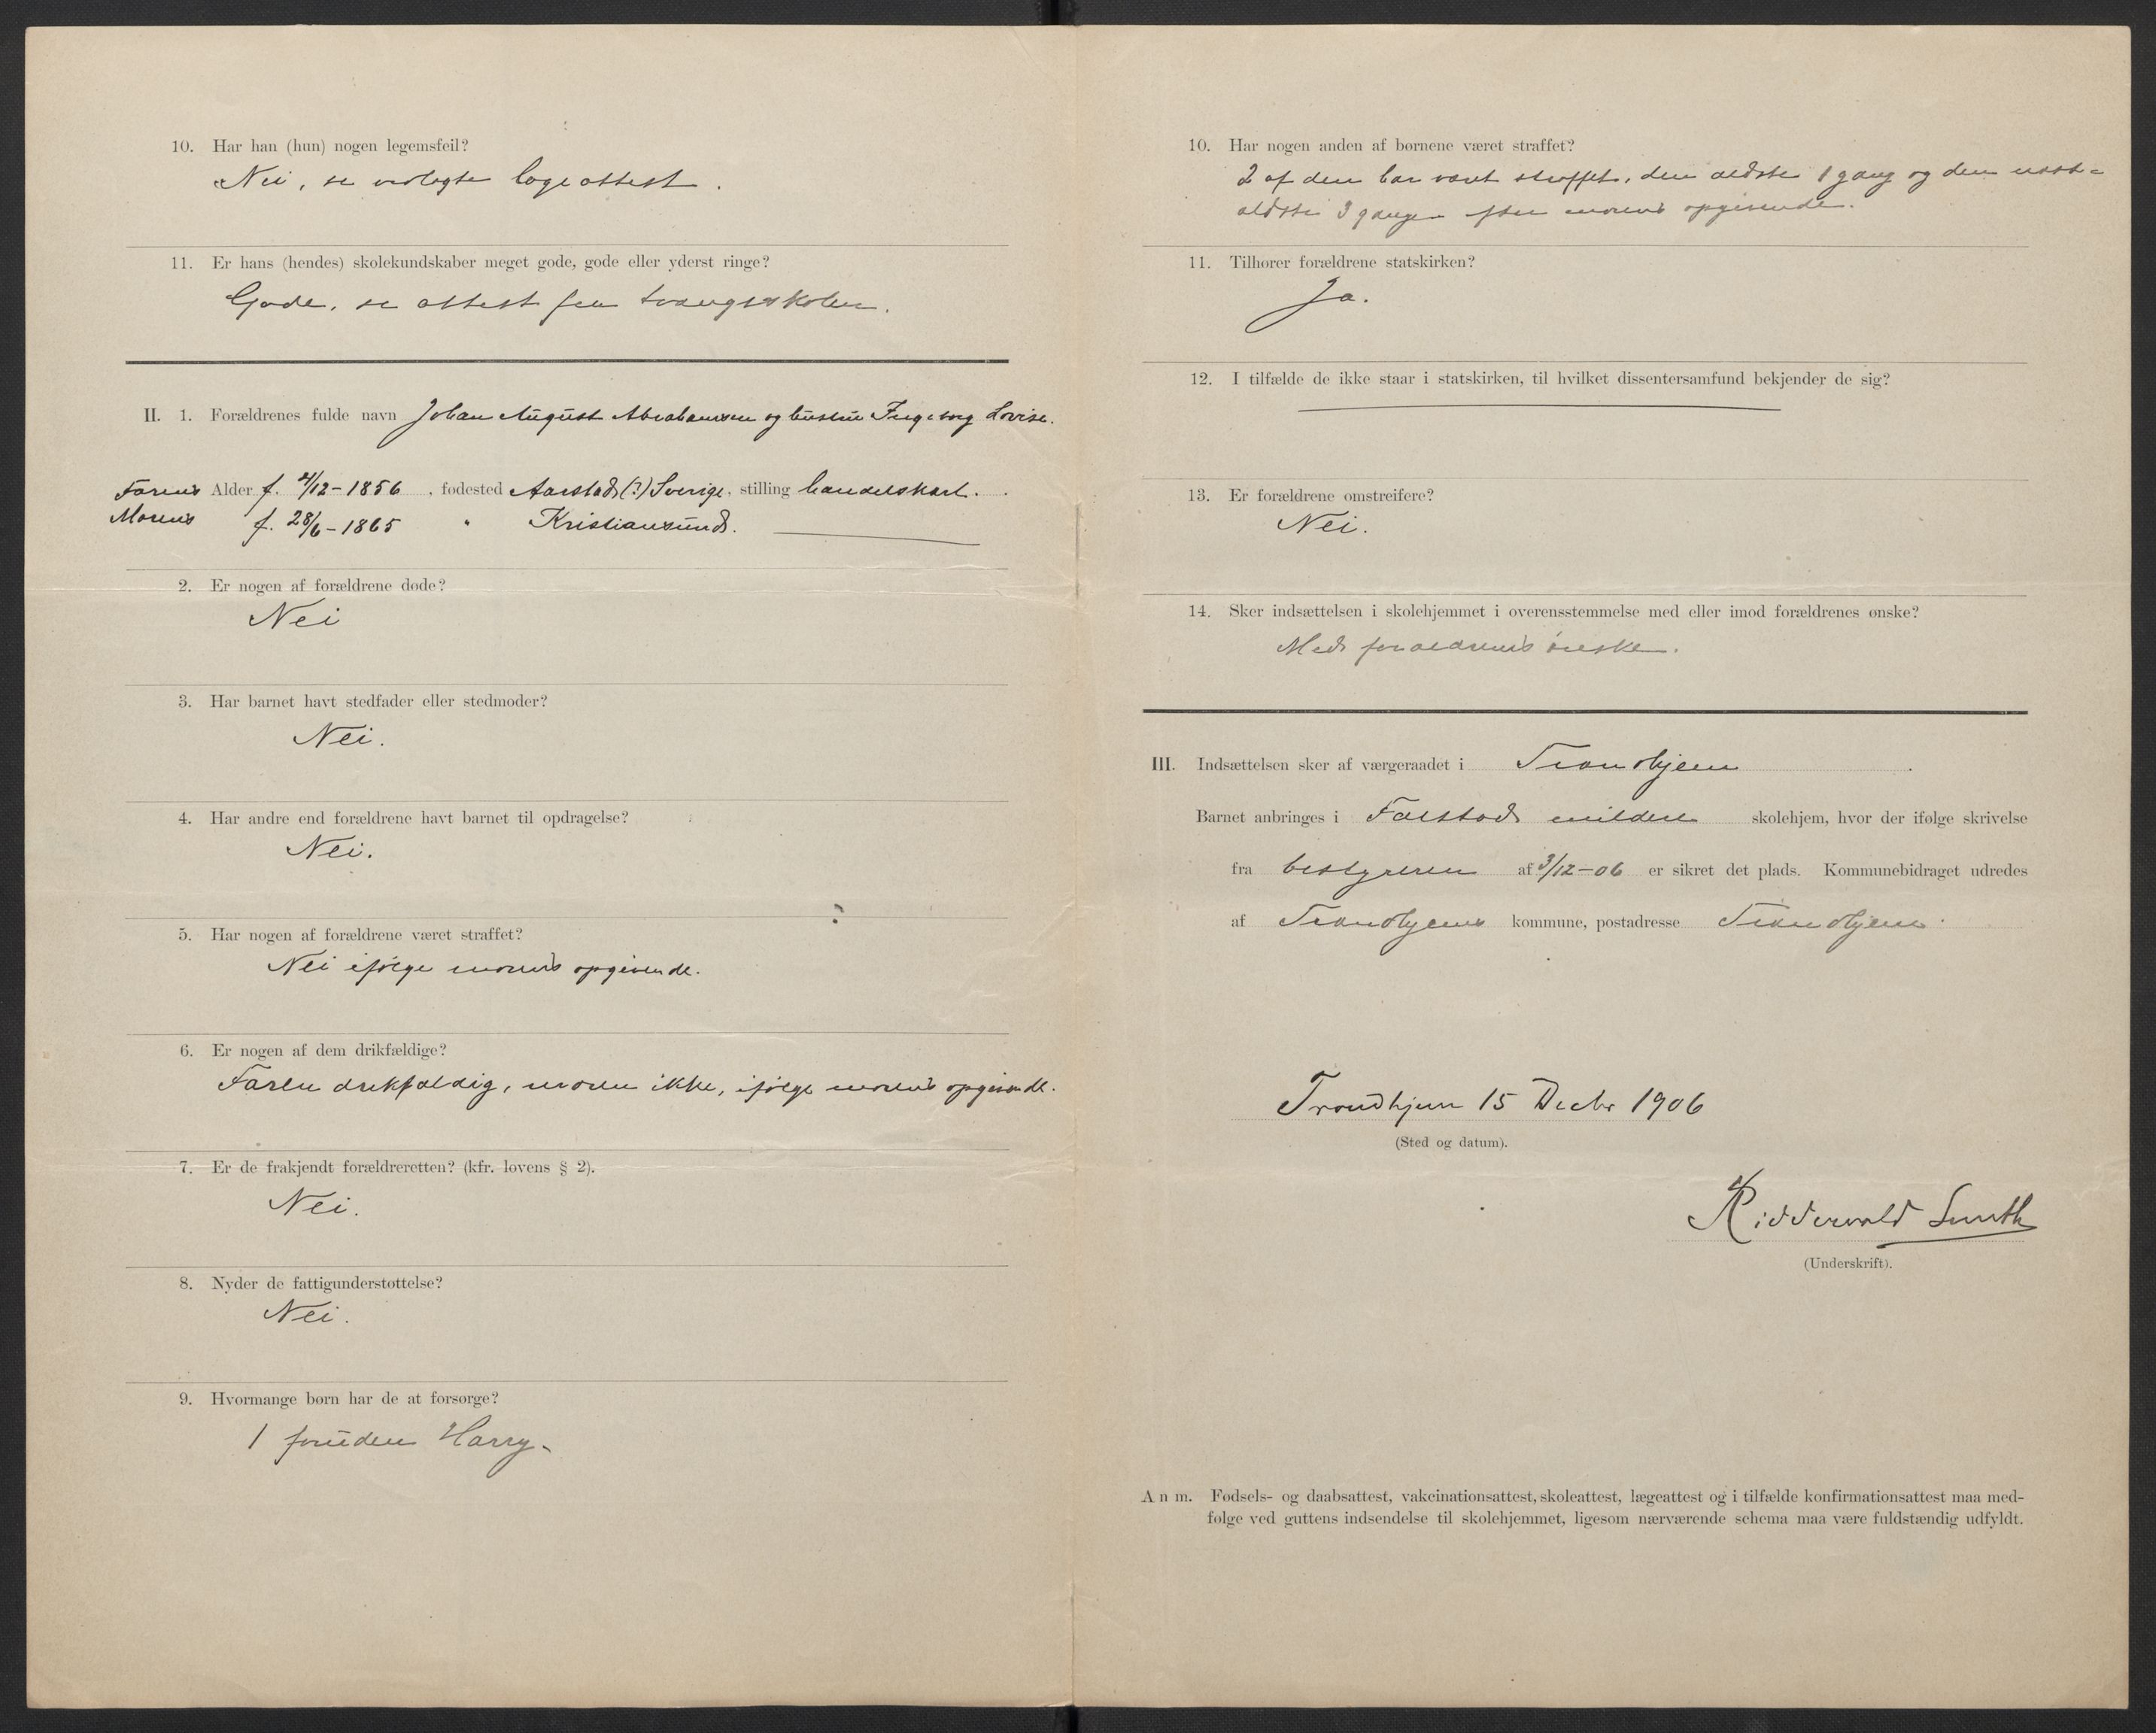 10. Har han (hun) nogen legemsfeil?
Nei, se vedlagte lægeattest.
11. Er hans (hendes) skolekundskaber meget gode, gode eller yderst ringe?
Gode, se attest fra tvangsskolen.
II. 1. Forældrenes fulde navn Johan August Abrahamsen og hustru Ingeborg Lovise.
Farens Alder f. 4/12-1856, fødested Aarstad (?) Sverige, stilling handelskarl.
Morens f. 28/6-1865 " Kristiansund.
2. Er nogen af forældrene døde?
Nei
3. Har barnet havt stedfader eller stedmoder?
Nei.
4. Har andre end forældrene havt barnet til opdragelse?
Nei.
5. Har nogen af forældrene været straffet?
Nei ifølge morens opgivende.
6. Er nogen af dem drikfældige?
Faren drikfældig, moren ikke, ifølge morens opgivende.
7. Er de frakjendt forældreretten? (kfr. lovens § 2).
Nei.
8. Nyder de fattigunderstøttelse?
Nei.
9. Hvormange børn har de at forsørge?
1 foruden Harry.
10. Har nogen anden af børnene været straffet?
2 af dem har været straffet, den ældste 1 gang og den næst-
ældste 3 ganger efter morens opgivende.
11. Tilhører forældrene statskirken?
Ja.
12. I tilfælde de ikke staar i statskirken, til hvilket dissentersamfund bekjender de sig?
13. Er forældrene omstreifere?
Nei.
14. Sker indsættelsen i skolehjemmet i overensstemmelse med eller imod forældrenes ønske?
Med forældrenes ønske.
III. Indsættelsen sker af værgeraadet i Trondhjem.
Barnet anbringes i Falstad mildere skolehjem, hvor der ifølge skrivelse
fra bestyreren af 3/12-06 er sikret det plads. Kommunebidraget udredes
af Trondhjems kommune, postadresse Trondhjem.
Trondhjem 15 Decbr 1906
(Sted og datum).
Ridderwold Smith
(Underskrift).
Anm. Fødsels- og daabsattest, vakcinationsattest, skoleattest, lægeattest og i tilfælde konfirmationsattest maa med-
følge ved guttens indsendelse til skolehjemmet, ligesom nærværende schema maa være fuldstændig udfyldt.